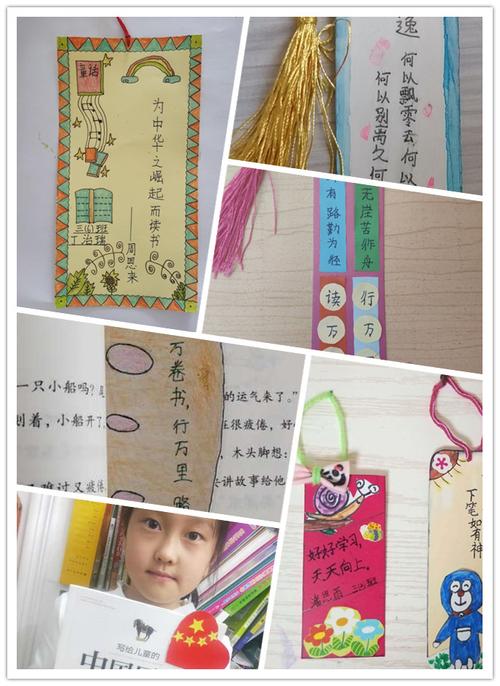 童话
为中华之崛起而读书
——周恩来
三(6)班
丁治瑞
逸
何以飘零去，何
何以别离久，何
何以
无崖苦作舟
有路勤为径
行万
读万
万卷书，行万里路
一只小船吗？
的运气来了。”
划着，小船开了
很疲倦，好
，木头脚想：
难过又疲倦
讲故事给他
好好学习，
天天向上。
三(6)班
下笔如有神
写给儿童的
中国